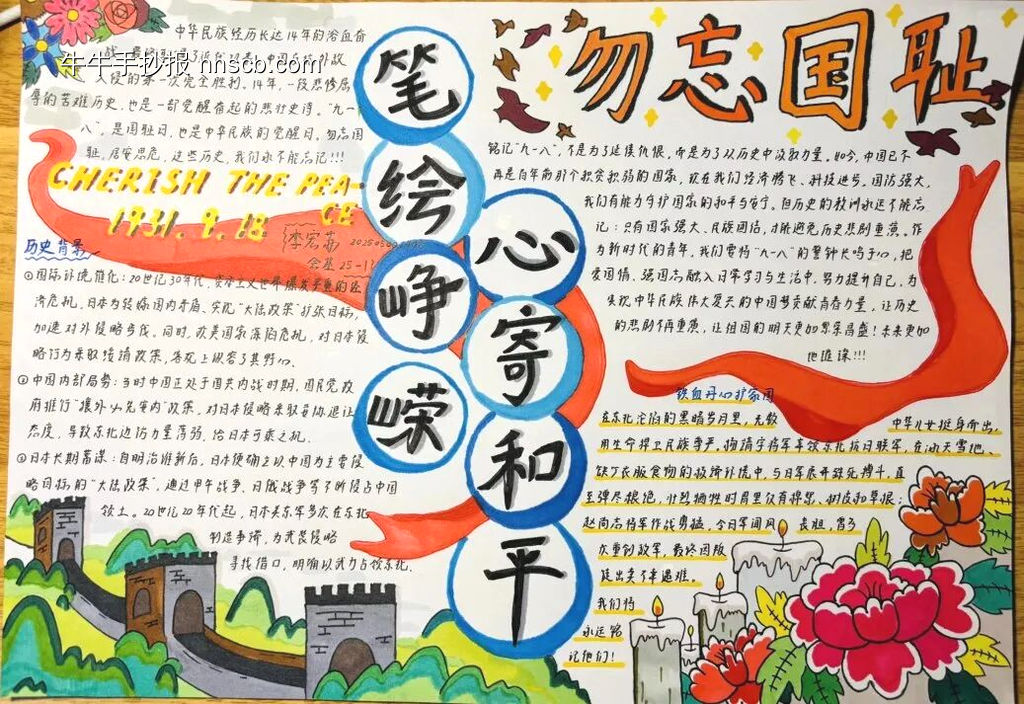 牛牛手抄报 nhscb.com
中华民族经历长达14年的浴血奋
入侵的第一次完全胜利。14年,一段悲惨屈
辱的苦难历史,也是一部觉醒奋起的悲壮史诗。“九一
八”,是国耻日,也是中华民族的觉醒日。勿忘国
耻,居安思危,这些历史,我们永不能忘记!!!
CHERISH THE PEA-
CE
1931.9.18
李宏荔
会基25-1
历史背景
①国际环境催化:20世纪30年代,资本主义世界爆发严重的经
济危机,日本为转嫁国内矛盾、实现“大陆政策”扩张目标,
加速对外侵略步伐。同时,欧美国家深陷危机,对日本侵
略行为采取绥靖政策,客观上纵容了其野心。
②中国内部局势:当时中国正处于国共内战时期,国民党政
府推行“攘外必先安内”政策,对日本侵略采取妥协退让
态度,导致东北边防力量薄弱,给日本可乘之机。
③日本长期蓄谋:自明治维新后,日本便确立以中国为主要侵
略目标的“大陆政策”,通过甲午战争、日俄战争等不断蚕占中国
领土。20世纪20年代起,日本关东军多次在东北
制造事端,为武装侵略
寻找借口,明确以武力占领东北.
笔绘峥嵘
心寄和平
勿忘国耻
铭记“九一八”,不是为了延续仇恨,而是为了从历史中汲取力量。如今,中国已不
再是百年前那个积贫积弱的国家,现在我们经济腾飞、科技进步、国防强大,
我们有能力守护国家的和平与安宁。但历史的教训永远不能忘
记:只有国家强大、民族团结,才能避免历史悲剧重演。作
为新时代的青年,我们要将“九一八”的警钟长鸣于心,把
爱国情、强国志融入日常学习与生活中,努力提升自己,为
实现中华民族伟大复兴的中国梦贡献青春力量,让历史
的悲剧不再重演,让祖国的明天更加繁荣昌盛!未来更加
地璀璨!!!
铁血丹心护家国
在东北沦陷的黑暗岁月里,无数中华儿女挺身而出,
用生命捍卫民族尊严。杨靖宇将军率领东北抗日联军,在冰天雪地、
缺乏衣服食物的极端环境中,与日军展开殊死搏斗,直
至弹尽粮绝,壮烈牺牲时胃里仅有棉絮、树皮和草根;
赵尚志将军作战勇猛,令日军闻风丧胆,曾多
次重创敌军,最终因叛
徒出卖不幸遇难。
我们将
永远铭
记他们!